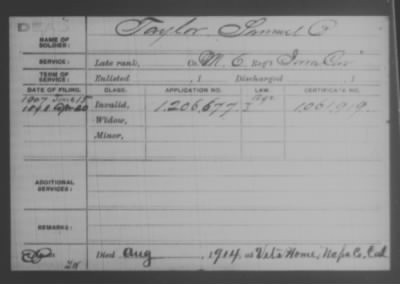 DEAD
NAME OF SOLDIER: Taylor, Samuel C.
SERVICE: Late rank, Co. M. 6 Reg't Iowa Cav
TERM OF SERVICE: Enlisted , 1 Discharged , 1
DATE OF FILING. CLASS. APPLICATION NO. LAW. CERTIFICATE NO.
1907 June 15 Invalid, 1.206.677. Age 1061.919.
Widow,
Minor,
ADDITIONAL SERVICES:
REMARKS:
Died Aug , 1914, at Vets Home, Napa Co, Cal